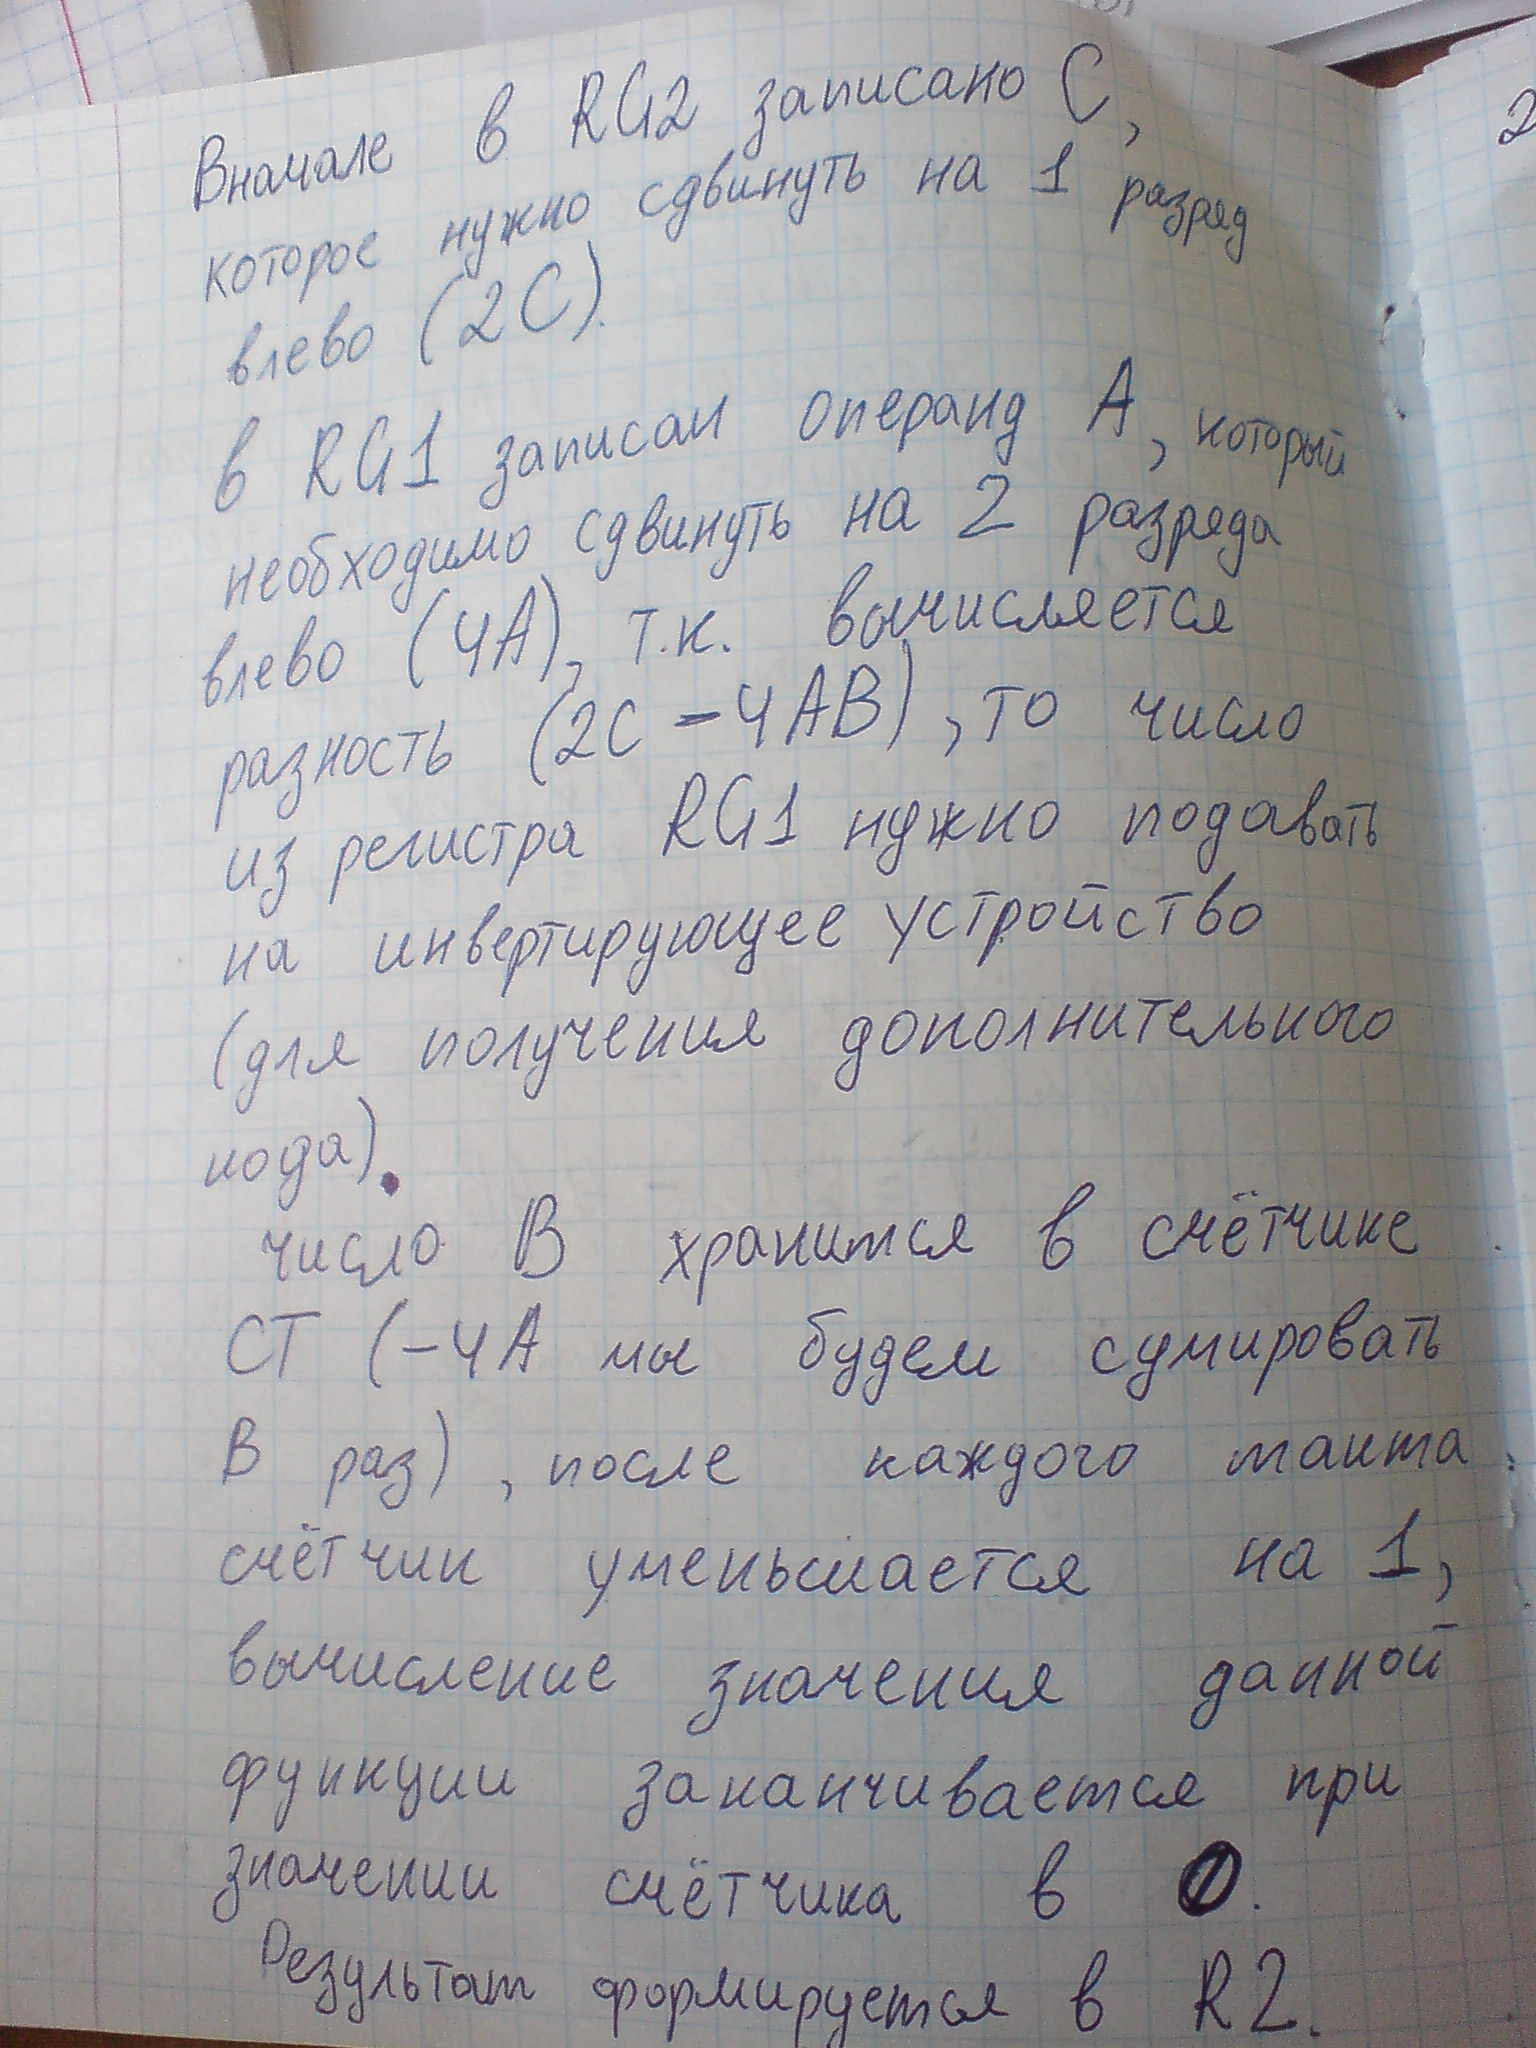 Вначале в RG2 записано C,
которое нужно сдвинуть на 1 разряд
влево (2C).
в RG1 записан операнд A, который
необходимо сдвинуть на 2 разряда
влево (4A), т.к. вычисляется
разность (2C - 4AB), то число
из регистра RG1 нужно подавать
на инвертирующее устройство
(для получения дополнительного
кода).
число B хранится в счётчике
CT (-4A мы будем сумировать
B раз), после каждого такта
счётчик уменьшается на 1,
вычисление значения данной
функции заканчивается при
значении счётчика в 0.
Результат формируется в R2.